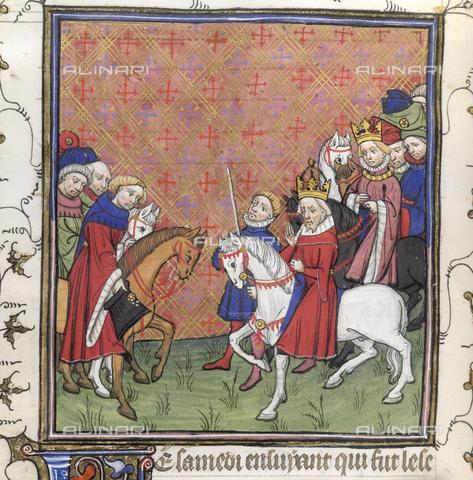 ALINARI ALINARI
ALINARI
ALINARI ALINARI
E samedi ensuyant qui fut lese